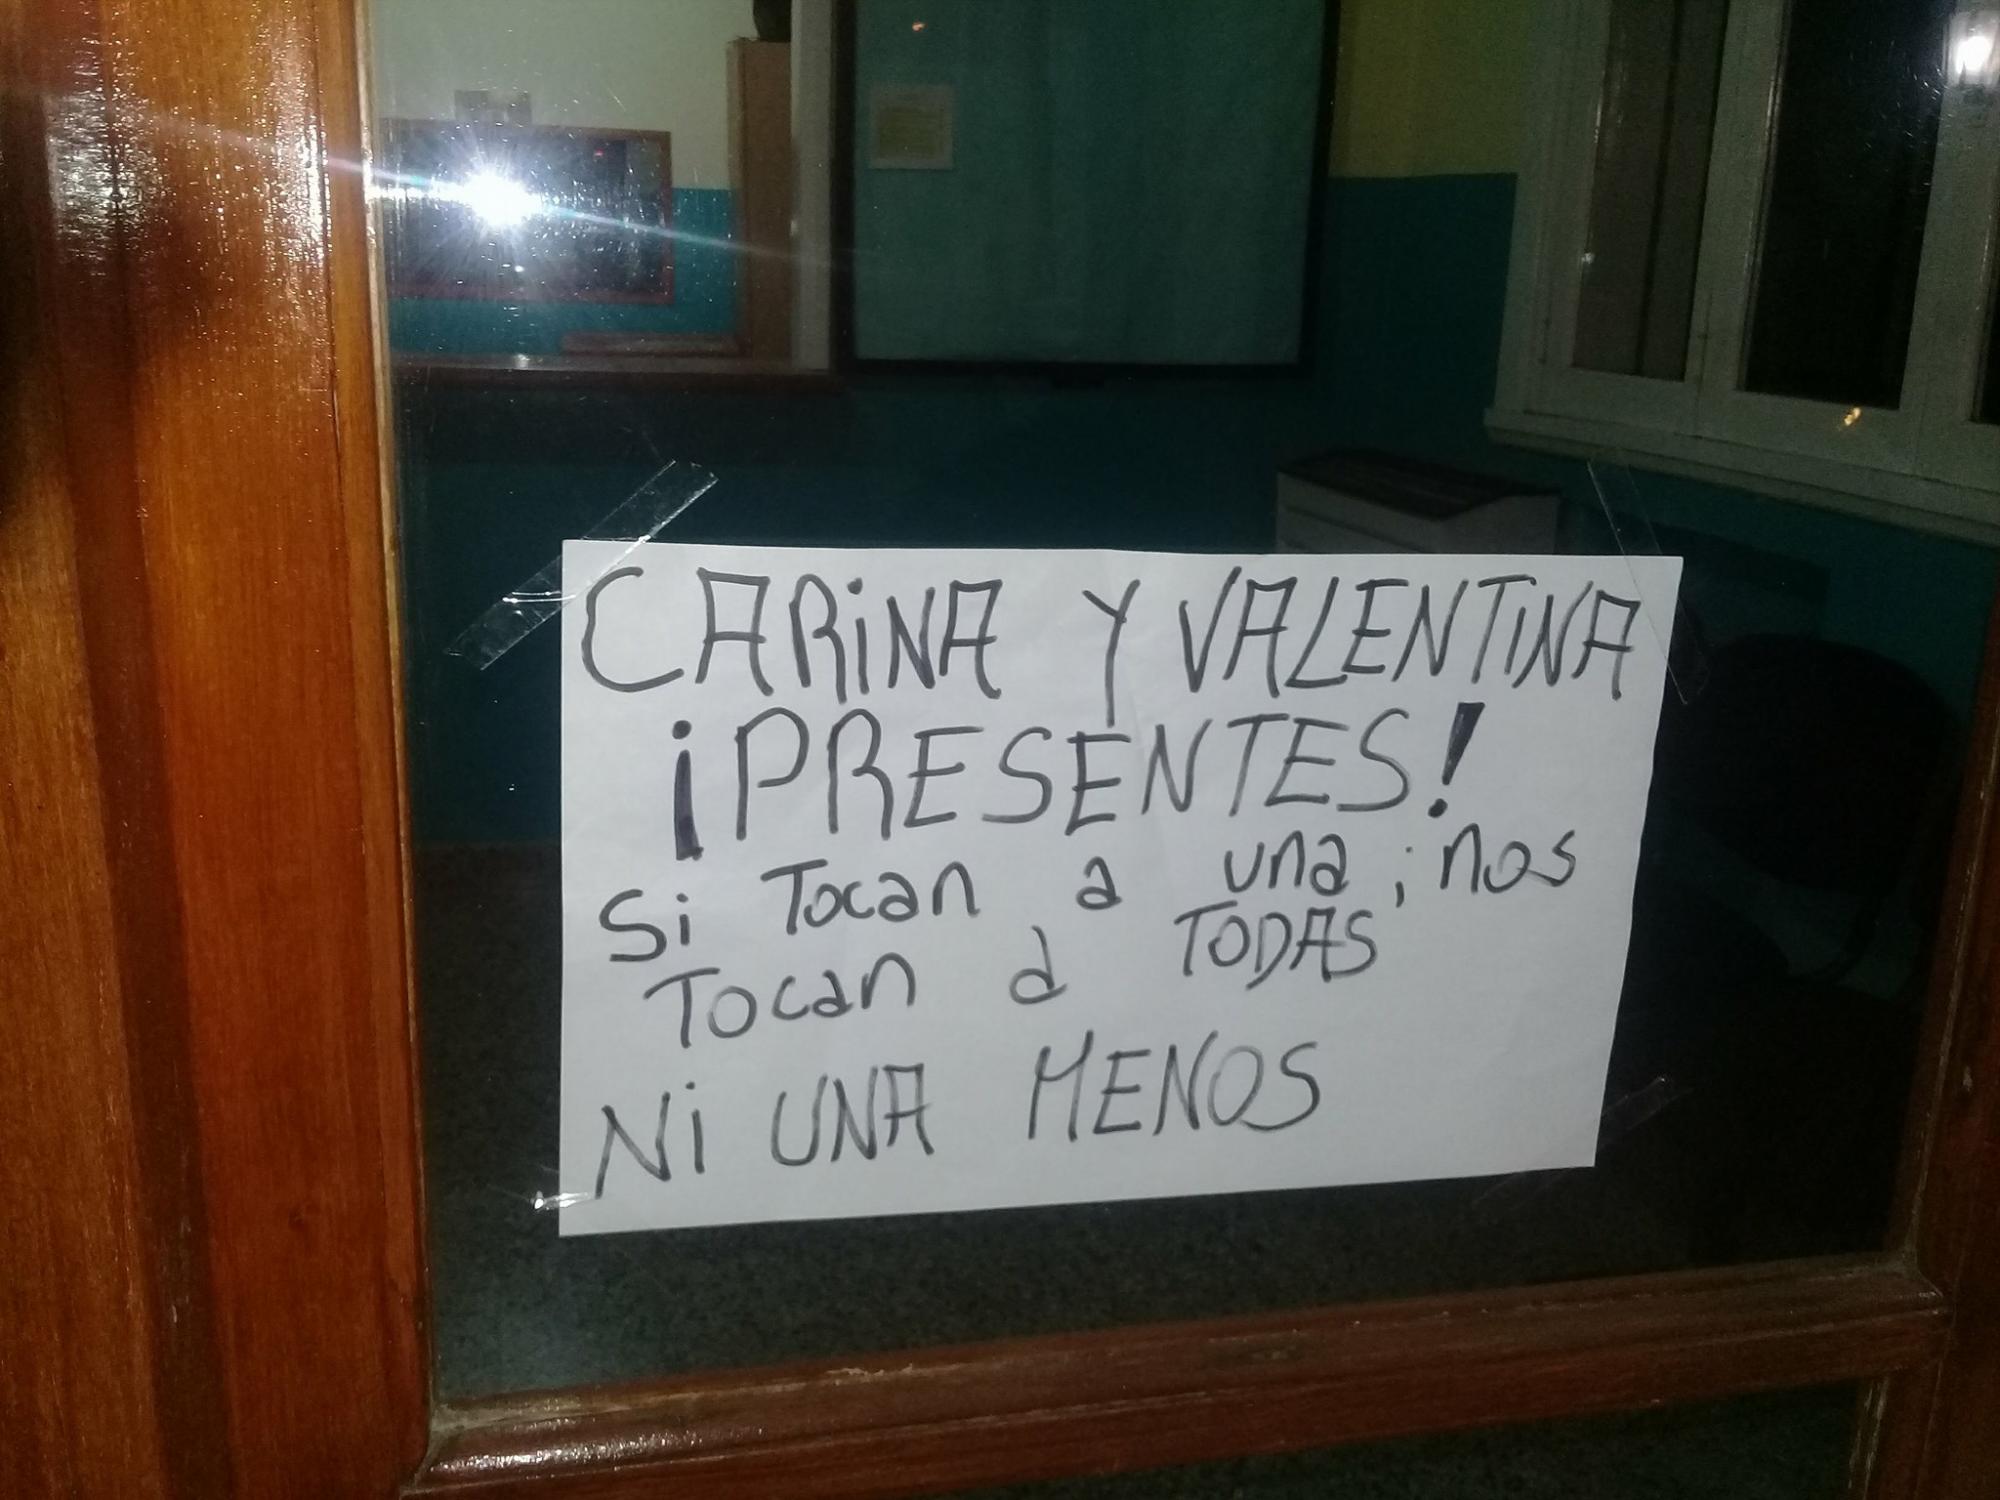 CARiNA Y VALENTINA
¡PRESENTES!
Si Tocan a una ; nos
Tocan a TODAS
Ni UNA MENOS